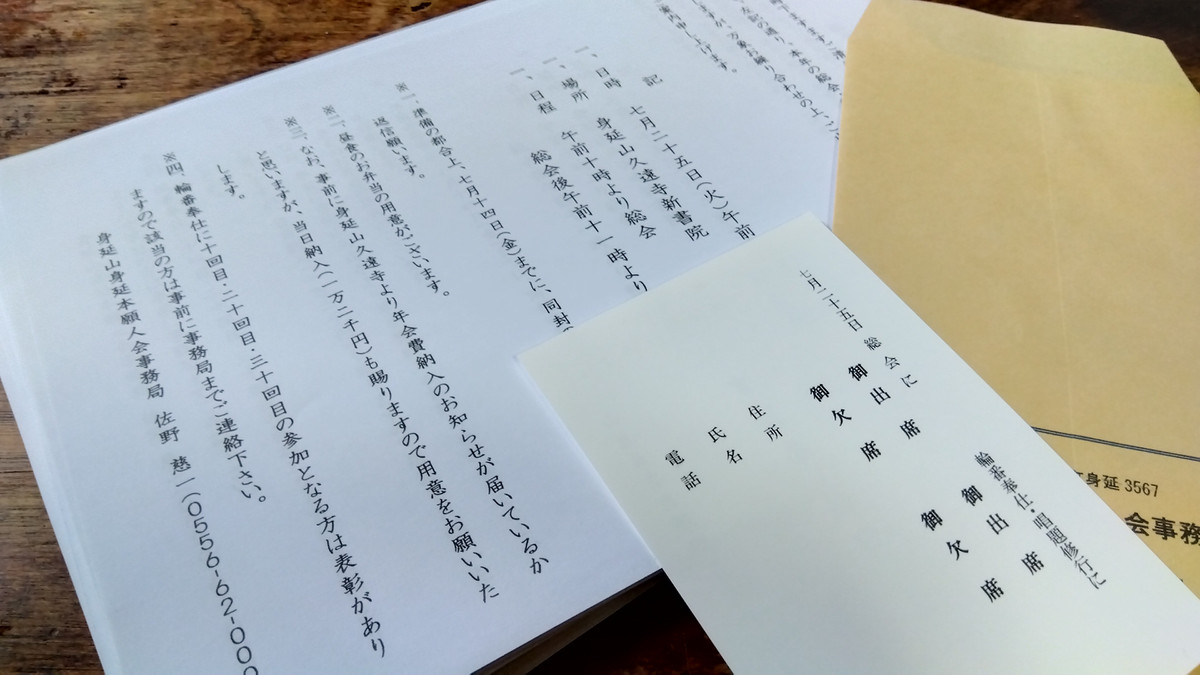 ご案内申し上げます。
記
一、日時　七月二十五日（火）午前
一、場所　身延山久遠寺新書院
一、日程　午前十時より総会
総会後午前十一時より
※一、準備の都合上、七月十四日（金）までに、同封の
返信願います。
※二、昼食のお弁当の用意がございます。
※三、なお、事前に身延山久遠寺より年会費納入のお知らせが届いているか
と思いますが、当日納入（一万二千円）も賜りますので用意をお願いいた
します。
※四、輪番奉仕に十回目・二十回目・三十回目の参加となる方は表彰があり
ますので該当の方は事前に事務局までご連絡下さい。
身延山身延本願人会事務局　佐野　慈一（０５５６-６２-００
七月二十五日総会に
御出席
御欠席
輪番奉仕・唱題修行に
御出席
御欠席
住所
氏名
電話
身延 3567
会事務